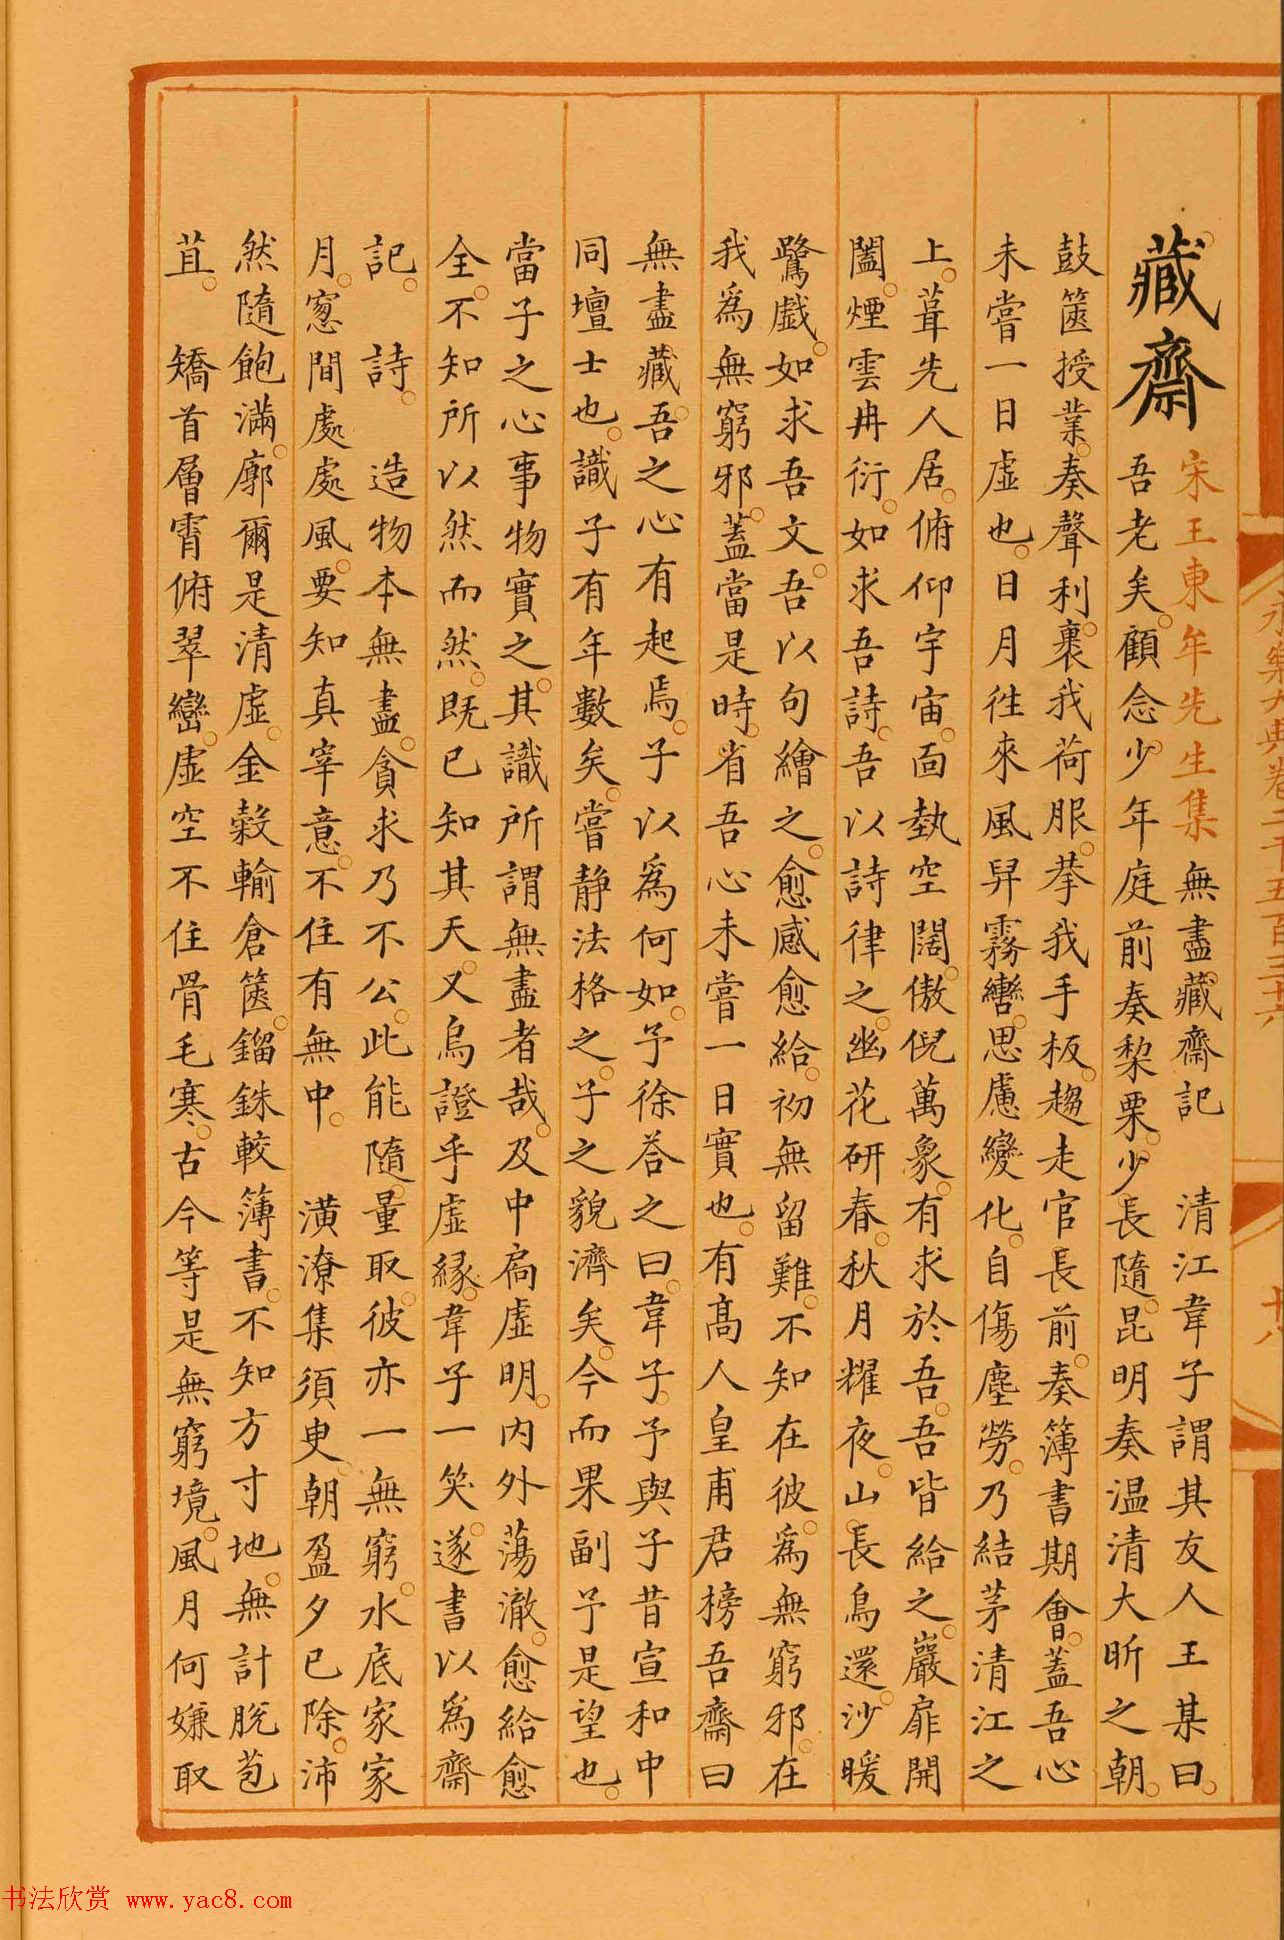 永樂大典卷二千五百三十六
藏齋
宋王東牟先生集無盡藏齋記 清江韋子謂其友人王某曰。
吾老矣。顧念少年庭前奏梨栗。少長隨昆明奏温清大昕之朝。
鼓篋授業。奏聲利。裹我荷服。拲我手板。趨走官長前。奏簿書期會。蓋吾心
未嘗一日虛也。日月徃來。風舁霧轡。思慮變化。自傷塵勞。乃結茅清江之
上。葺先人居。俯仰宇宙。面埶空闊。傲倪萬象。有求於吾。吾皆給之。巖扉開
闔。煙雲冉衍。如求吾詩。吾以詩律之。幽花研春。秋月耀夜。山長鳥還。沙暖
鷺戯。如求吾文。吾以句繪之。愈感愈給。初無留難。不知在彼。爲無窮邪。在
我爲無窮邪。蓋當是時。省吾心未嘗一日實也。有高人皇甫君榜吾齋曰
無盡藏。吾之心有起焉。子以爲何如。予徐荅之曰。韋子。予與子昔宣和中
同壇士也。識子有年數矣。嘗静法格之。子之貌濟矣。今而果副予是望也。
當子之心事物實之。其識所謂無盡者哉。及中扃虛明。内外蕩澈。愈給愈
全。不知所以然而然。既已知其天。又烏證乎虛緣。韋子一笑。遂書以爲齋
記。詩。 造物本無盡。貪求乃不公。此能隨量取。彼亦一無窮。水底家家
月。窻間處處風。要知真宰意。不住有無中。 潢潦集須臾。朝盈夕已除。沛
然隨飽滿。廓爾是清虛。金穀輸倉篋。錙銖較簿書。不知方寸地。無計脱苞
苴。 矯首層霄俯翠巒。虛空不住骨毛寒。古今等是無窮境。風月何嫌取
书法欣赏 www.yac8.com